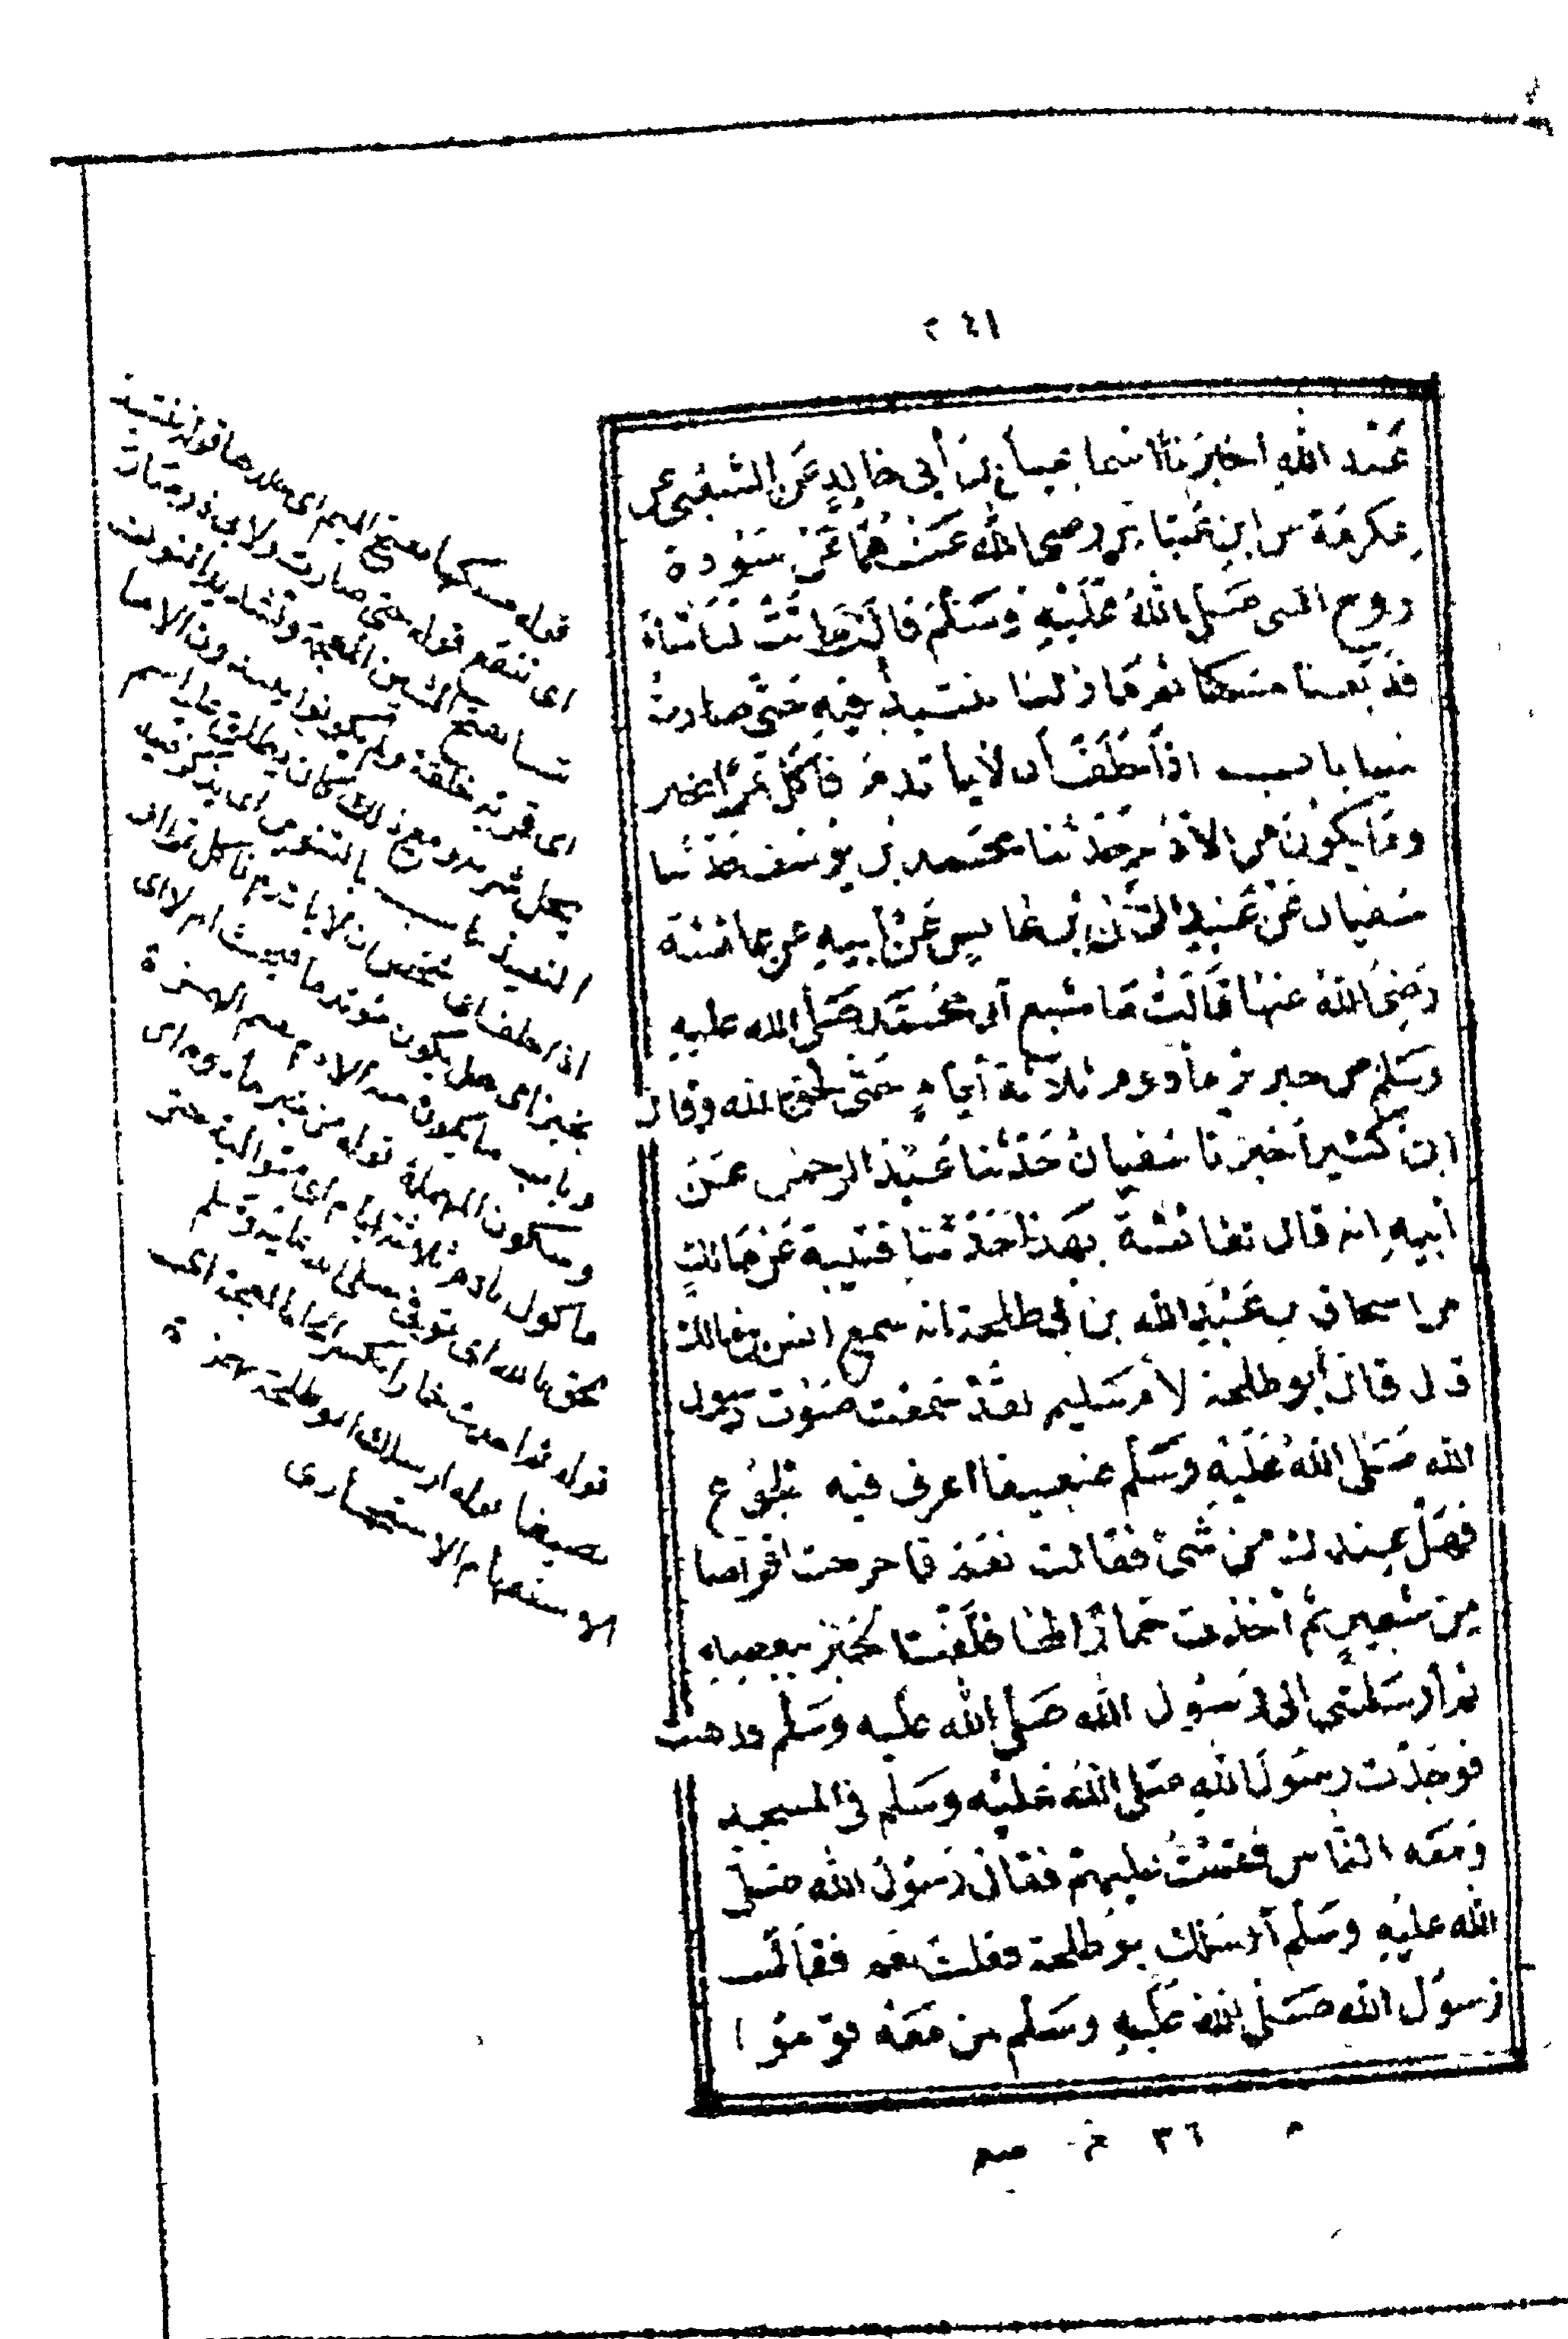 ٢٤١
عَبْد الله اخبَرَنَا اسما عيل بن أبي خالدٍ عَنِ الشعْبِي عن
عِكرمَة عن ابنِ عَبَّاس رضي الله عَنْهُمَا عَنْ سَوْدة
زوج النبي صَلى اللهُ عَلَيْهِ وَسَلمْ قالَت مَا تَتْ لَنَا شاة
فدَبَغنا مسكها ثم مَا زلنا ننتبذُ فِيهِ حَتَّى صارت
شنا باب اذَا حَلَفَ أن لا يأتدم فأكل تمرًا بخبز
ومَا يكونُ من الأُدْمِ حَدثنا محَمد بن يُوسف حَدثنا
سُفيان عَنْ عَبْدِ الرَّحْمٰن بن عَا بسٍ عَنْ أبيهِ عن عائشة
رَضيَ اللهُ عنها قَالَتْ مَا شبع آل محُمَّدٍ صَلى الله عليهِ
وَسَلم من خبز بُرٍّ مأدوم ثلاَثة أيامٍ حَتَّى لحق بالله وقال
ابن كَثير أخبرنا سُفيانُ حَدَّثنا عَبْدُ الرحمٰن عَنْ
أبيهِ انه قال لعَائشَة بهَذا حَدَّثنا قتيبة عَنْ مَالكٍ
عن اسحاق بن عَبْدِ الله بن أبي طلحة انه سمع انس بن مَالك
قال قال أبو طلحة لأم سُليم لقَدْ سَمعْت صَوْت رسول
الله صَلى اللهُ عَلَيْهِ وَسَلّم ضعيفا اعرف فيه الجُوع
فَهَلْ عِندك من شَيْ فقالت نَعَم فاخرجت اقراصا
مِن شعيرٍ ثم أخذت خمارًا لهَا فلَفّت الخُبْزَ ببعضِه
ثم أرسَلتني إلى رَسُول الله صَلى الله عليه وَسَلم فذهبت
فوَجَدْت رسُولَ اللهِ صَلى اللهُ عَليْه وسَلّم في المسجِد
وَمَعَه الناس فقمْتُ عليهِمْ فقَال رَسوُل الله صَلى
الله عليْهِ وسَلم آرسَلك ابو طلحة فقلت نعم فقال
رَسوُل الله صَلى اللهُ عَلَيهِ وسَلم لمن مَعَهُ قومُوا
قوله مسكها بفتح الميم اى جلدها قوله ننتبذ
اى ننقع قوله حتى صارت ولابى ذر صارت
شنا بفتح الشين المعجمة وتشديد النون
اى قربة خلقة ولم يكونوا ينبذون الا ما
يحل شربه ومع ذلك كان يطلق عليه اسم
النبيذ باب بالتنوين اى يذكر فيه
اذا حلف اى شخص ان لا يأتدم فاكل تمرا
بخبز اى هل يكون مؤتدما فيحنث ام لا اى
وباب ما يكون منه الادم بضم الهمزة
وسكون المهملة قوله من خبز مأدوم اى
ماكول بادم ثلاثة ايام اى متوالية حتى
لحق بالله اى توفى صلى الله عليه وسلم
قوله خمارا بكسر الخاء المعجمة اى
نصيفا قوله ارسلك ابو طلحة بهمزة
الاستفهام الاستخبارى
٣٦